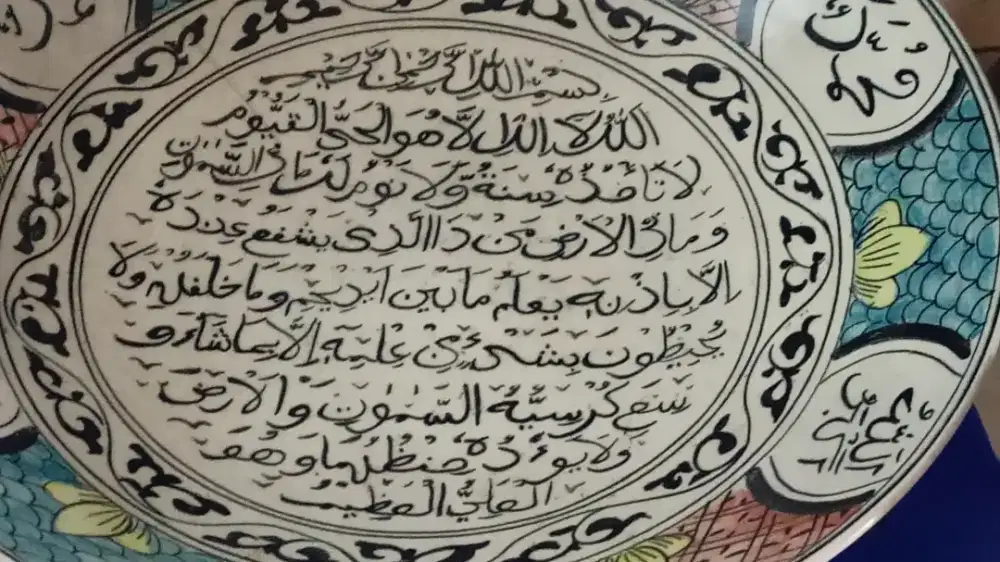 بسم الله الرحمن الرحيم
الله لا اله الا هو الحي القيوم
لا تأخذه سنة ولا نوم له ما في السموت
وما في الارض من ذا الذي يشفع عنده
الا باذنه يعلم ما بين ايديهم وما خلفهم ولا
يحيطون بشىء من علمه الا بما شاء و
سع كرسيه السموت والارض
ولا يوءده حفظهما وهو
العلي العظيم
محمد